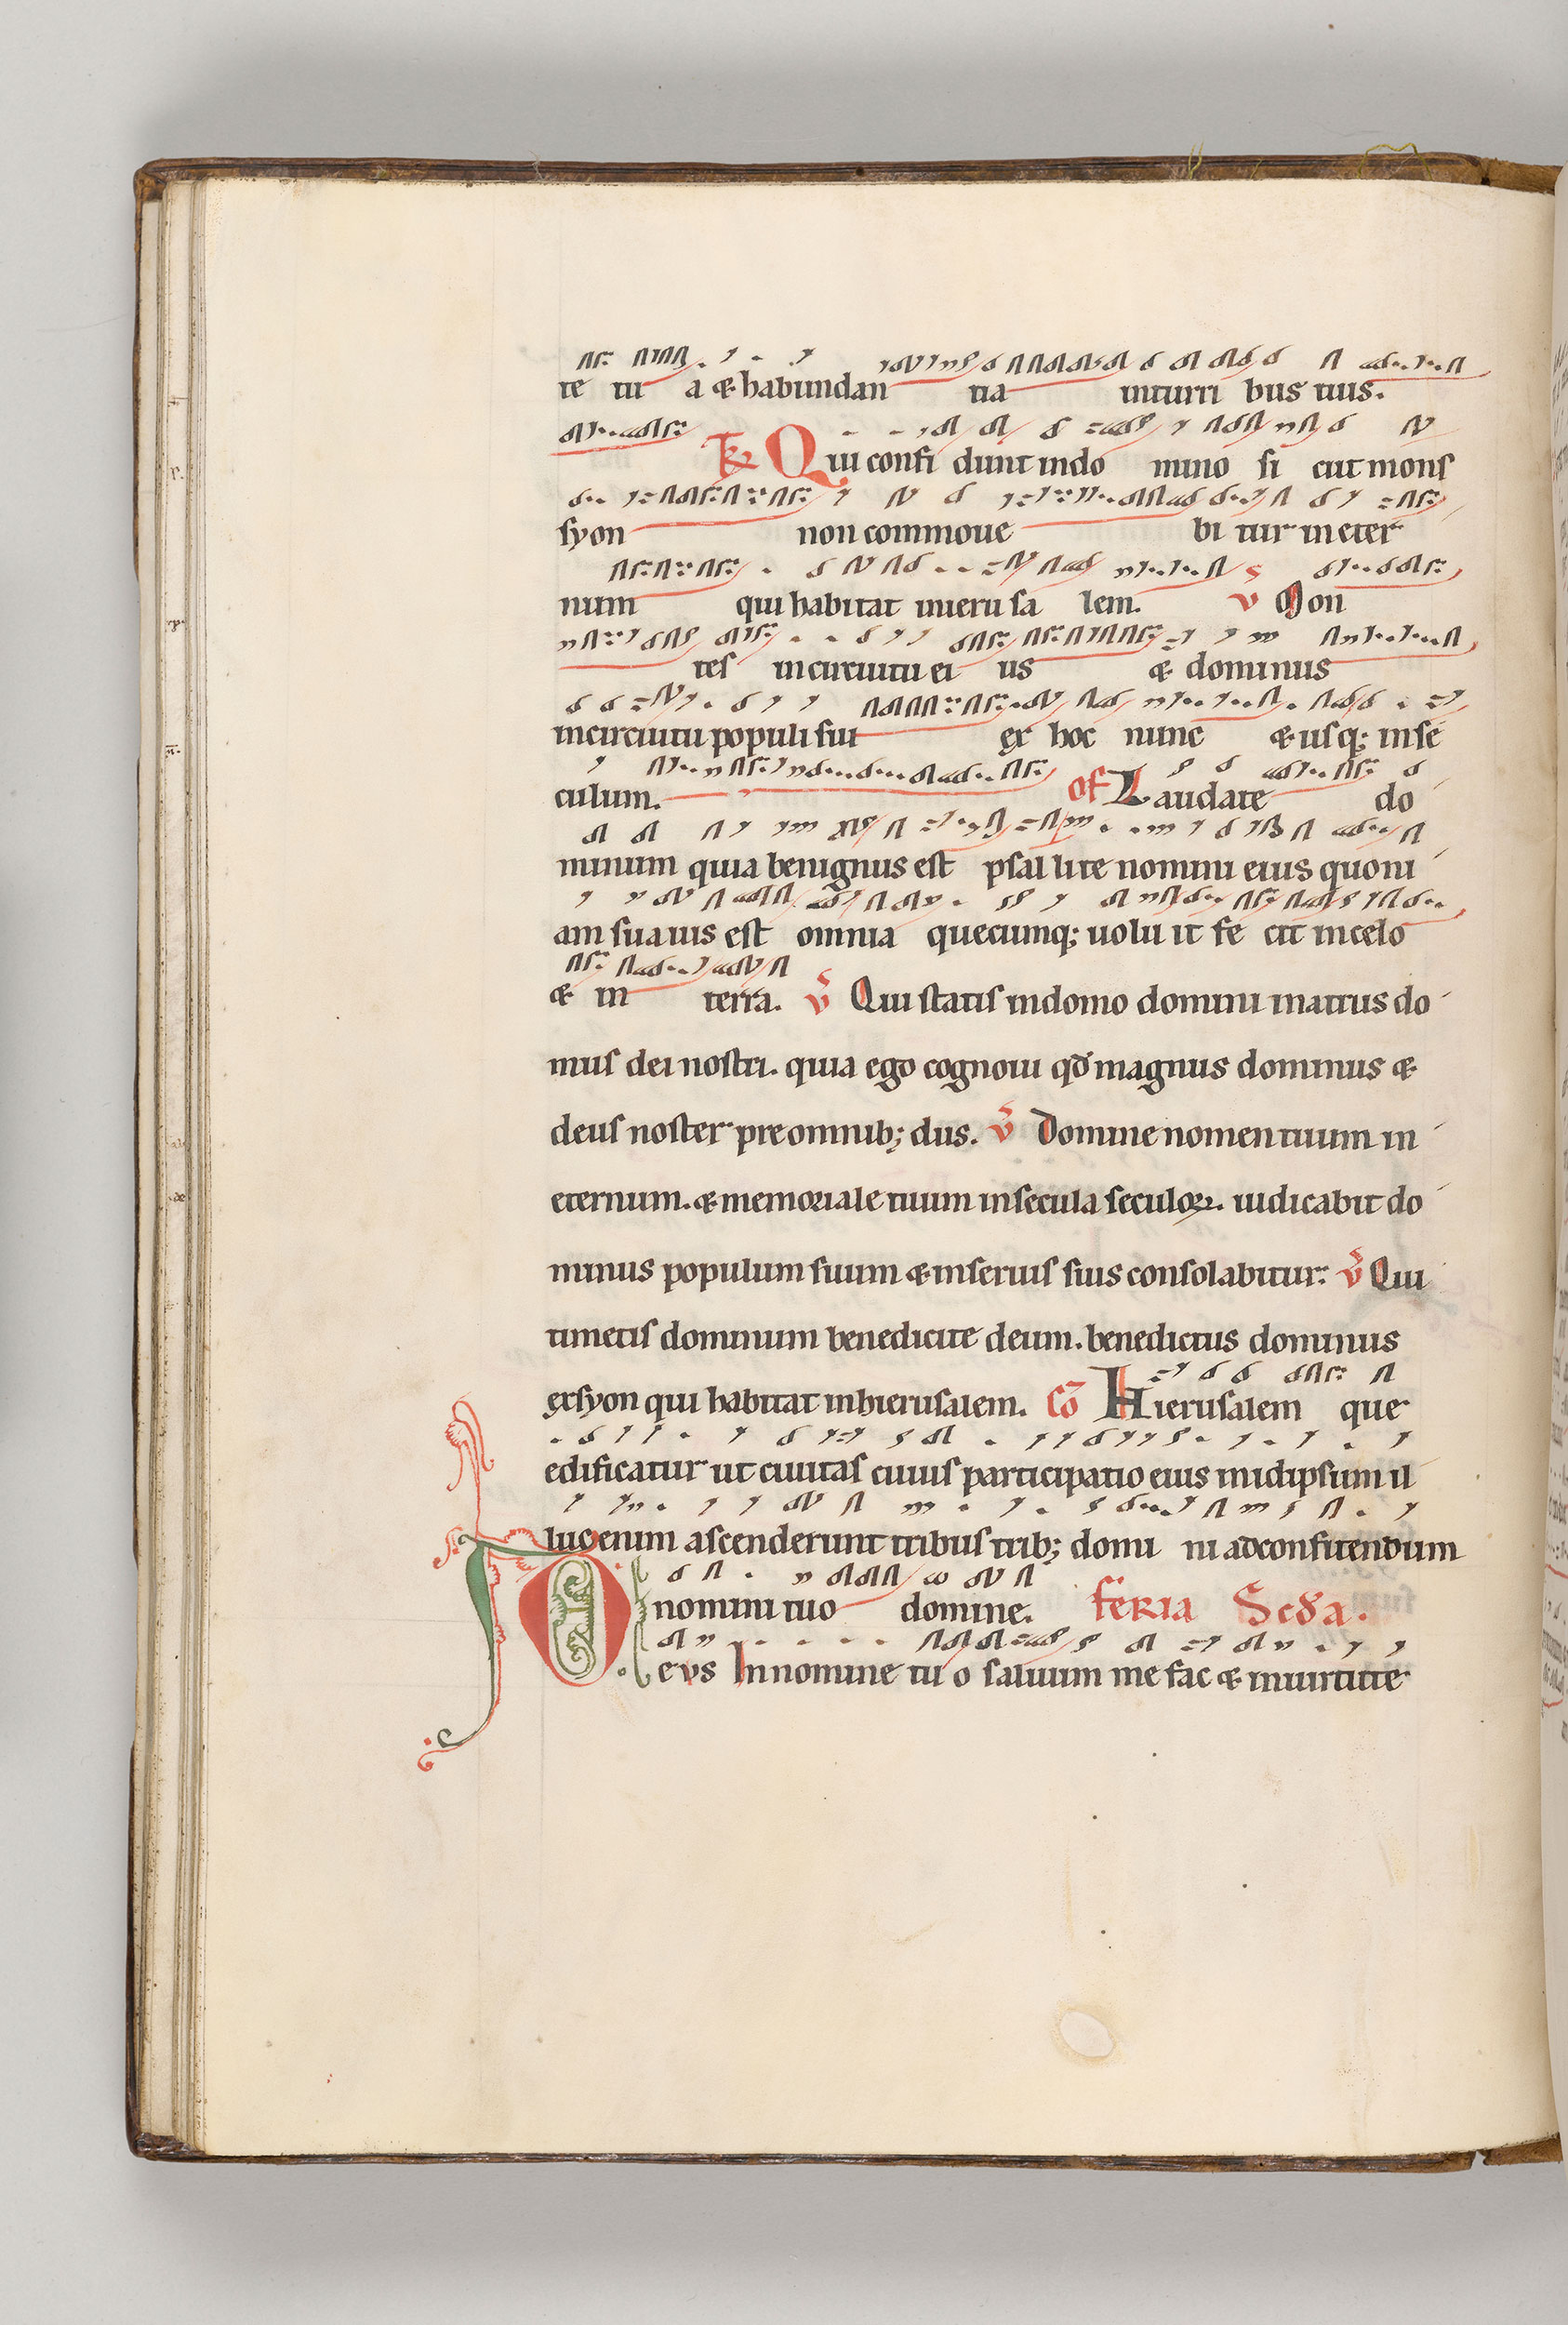 te tu a & habundan tia inturri bus tuis.
Tr Qui confi dunt indo mino si cut mons
syon non commoue bi tur in eter
num qui habitat inieru sa lem. v̄ Mon
tes incircuitu ei us & dominus
incircuitu populi sui ex hoc nunc & usq; inse
culum. Of Laudate do
minum quia benignus est psal lite nomini eius quoni
am suauis est omnia quecumq; uolu it fe cit incelo
& in terra. v̄ Qui statis indomo domini inatriis do
mus dei nostri. quia ego cognoui qđ magnus dominus &
deus noster preomnib; diis. v̄ Domine nomen tuum in
eternum. & memoriale tuum insecula seculoꝝ. iudicabit do
minus populum suum & inseruis suis consolabitur. v̄ Qui
timetis dominum benedicite deum. benedictus dominus
exsyon qui habitat inhierusalem. Cō Hierusalem que
edificatur ut ciuitas cuius participatio eius inidipsum il
luc enim ascenderunt tribus trib; domi ni adconfitendum
nomini tuo domine. feria Scđa.
Deus In nomine tu o saluum me fac & inuirtute